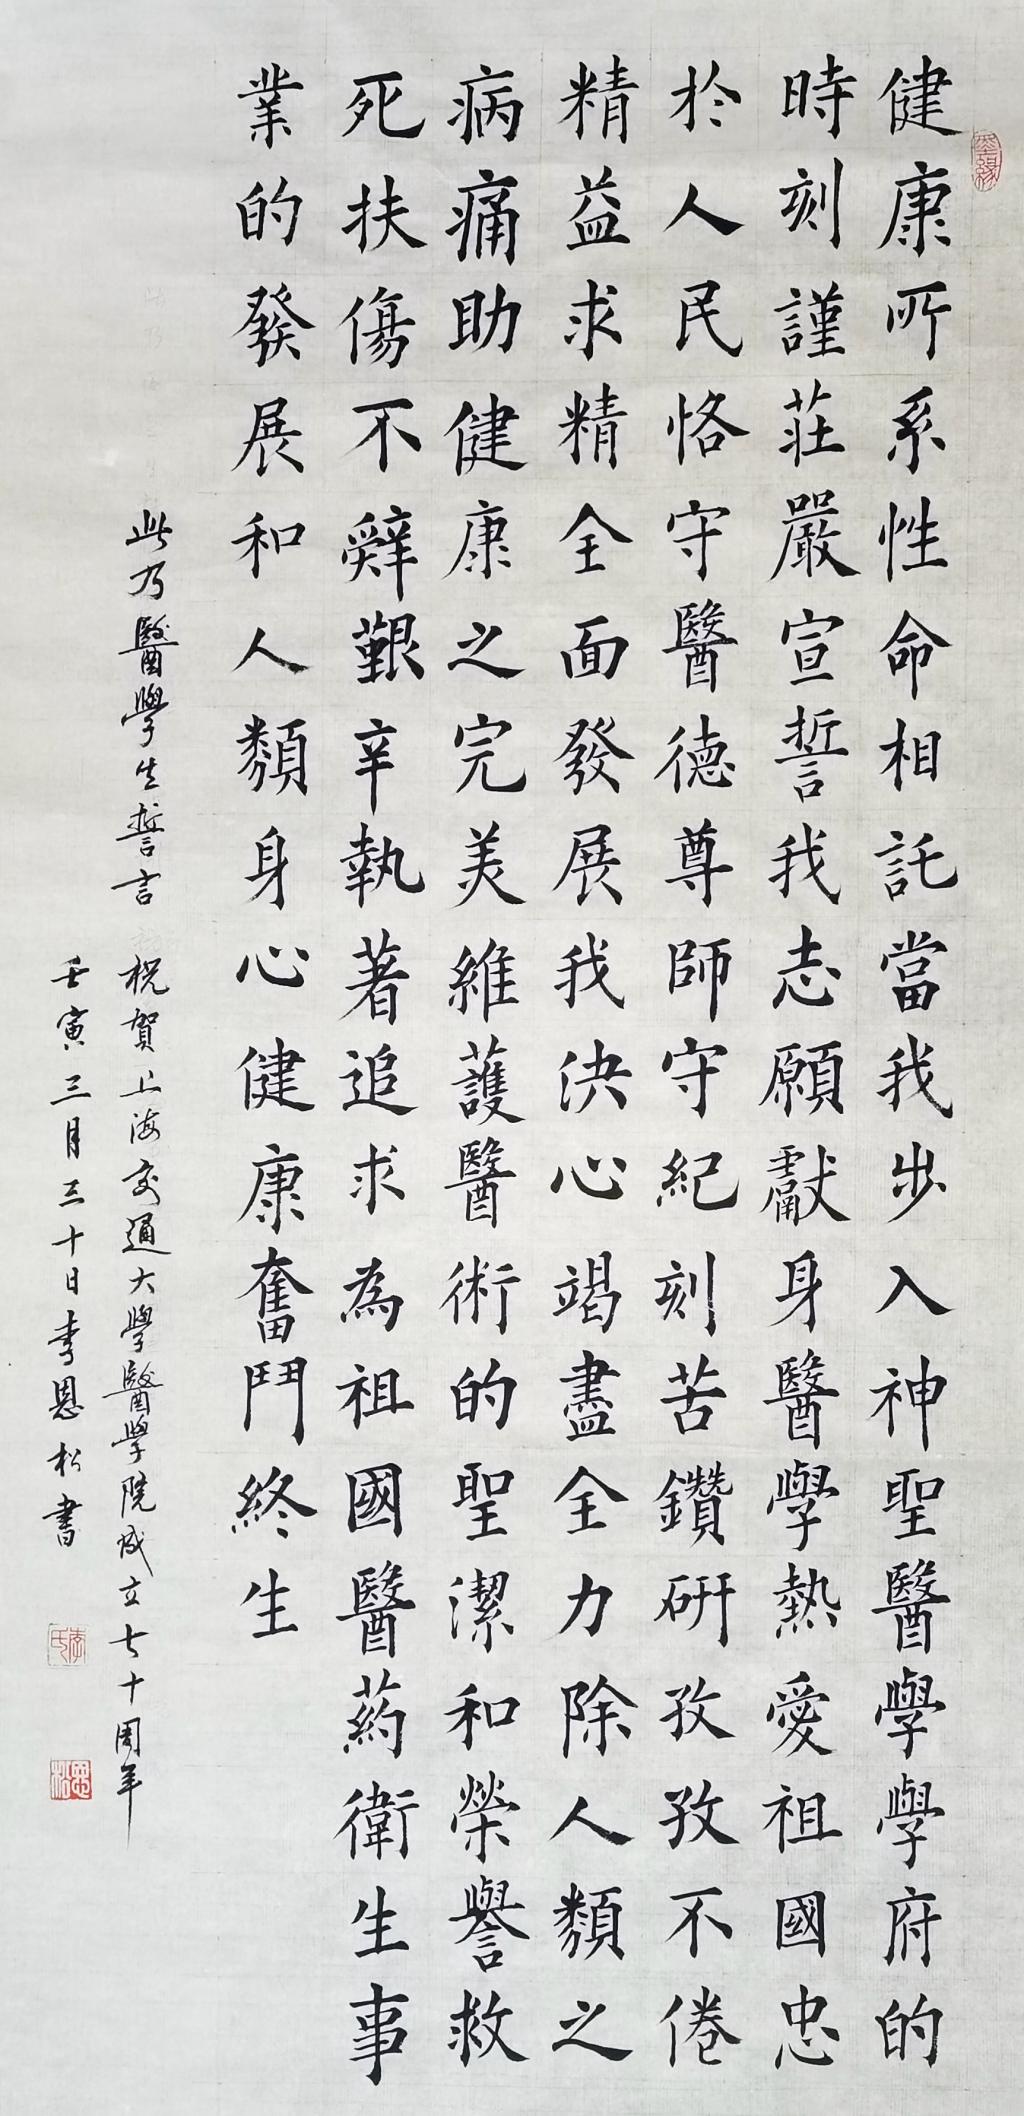 健康所系性命相託當我步入神聖醫學學府的
時刻謹莊嚴宣誓我志願獻身醫學熱愛祖國忠
於人民恪守醫德尊師守紀刻苦鑽研孜孜不倦
精益求精全面發展我決心竭盡全力除人類之
病痛助健康之完美維護醫術的聖潔和榮譽救
死扶傷不辭艱辛執著追求為祖國醫藥衛生事
業的發展和人類身心健康奮鬥終生
此乃醫學生誓言 祝賀上海交通大學醫學院成立七十周年
壬寅三月三十日李恩松書
墨緣
李氏
恩松